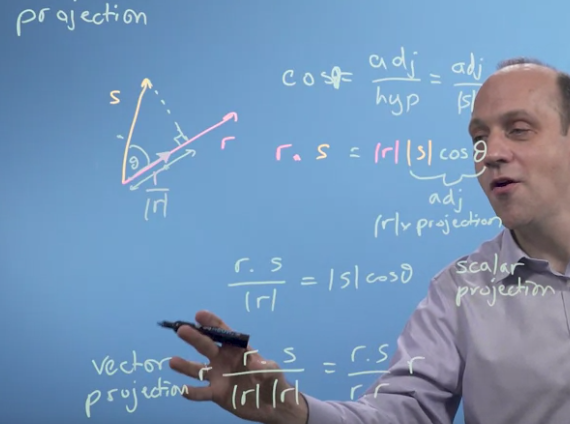 projection
cosθ = adj/hyp = adj/|s|
s
r
θ
|r|
r. s = |r||s|cosθ
adj
|r|x projection
r. s/|r| = |s|cosθ
scalar
projection
vector
projection
r r. s/|r||r| = r.s/r.r r